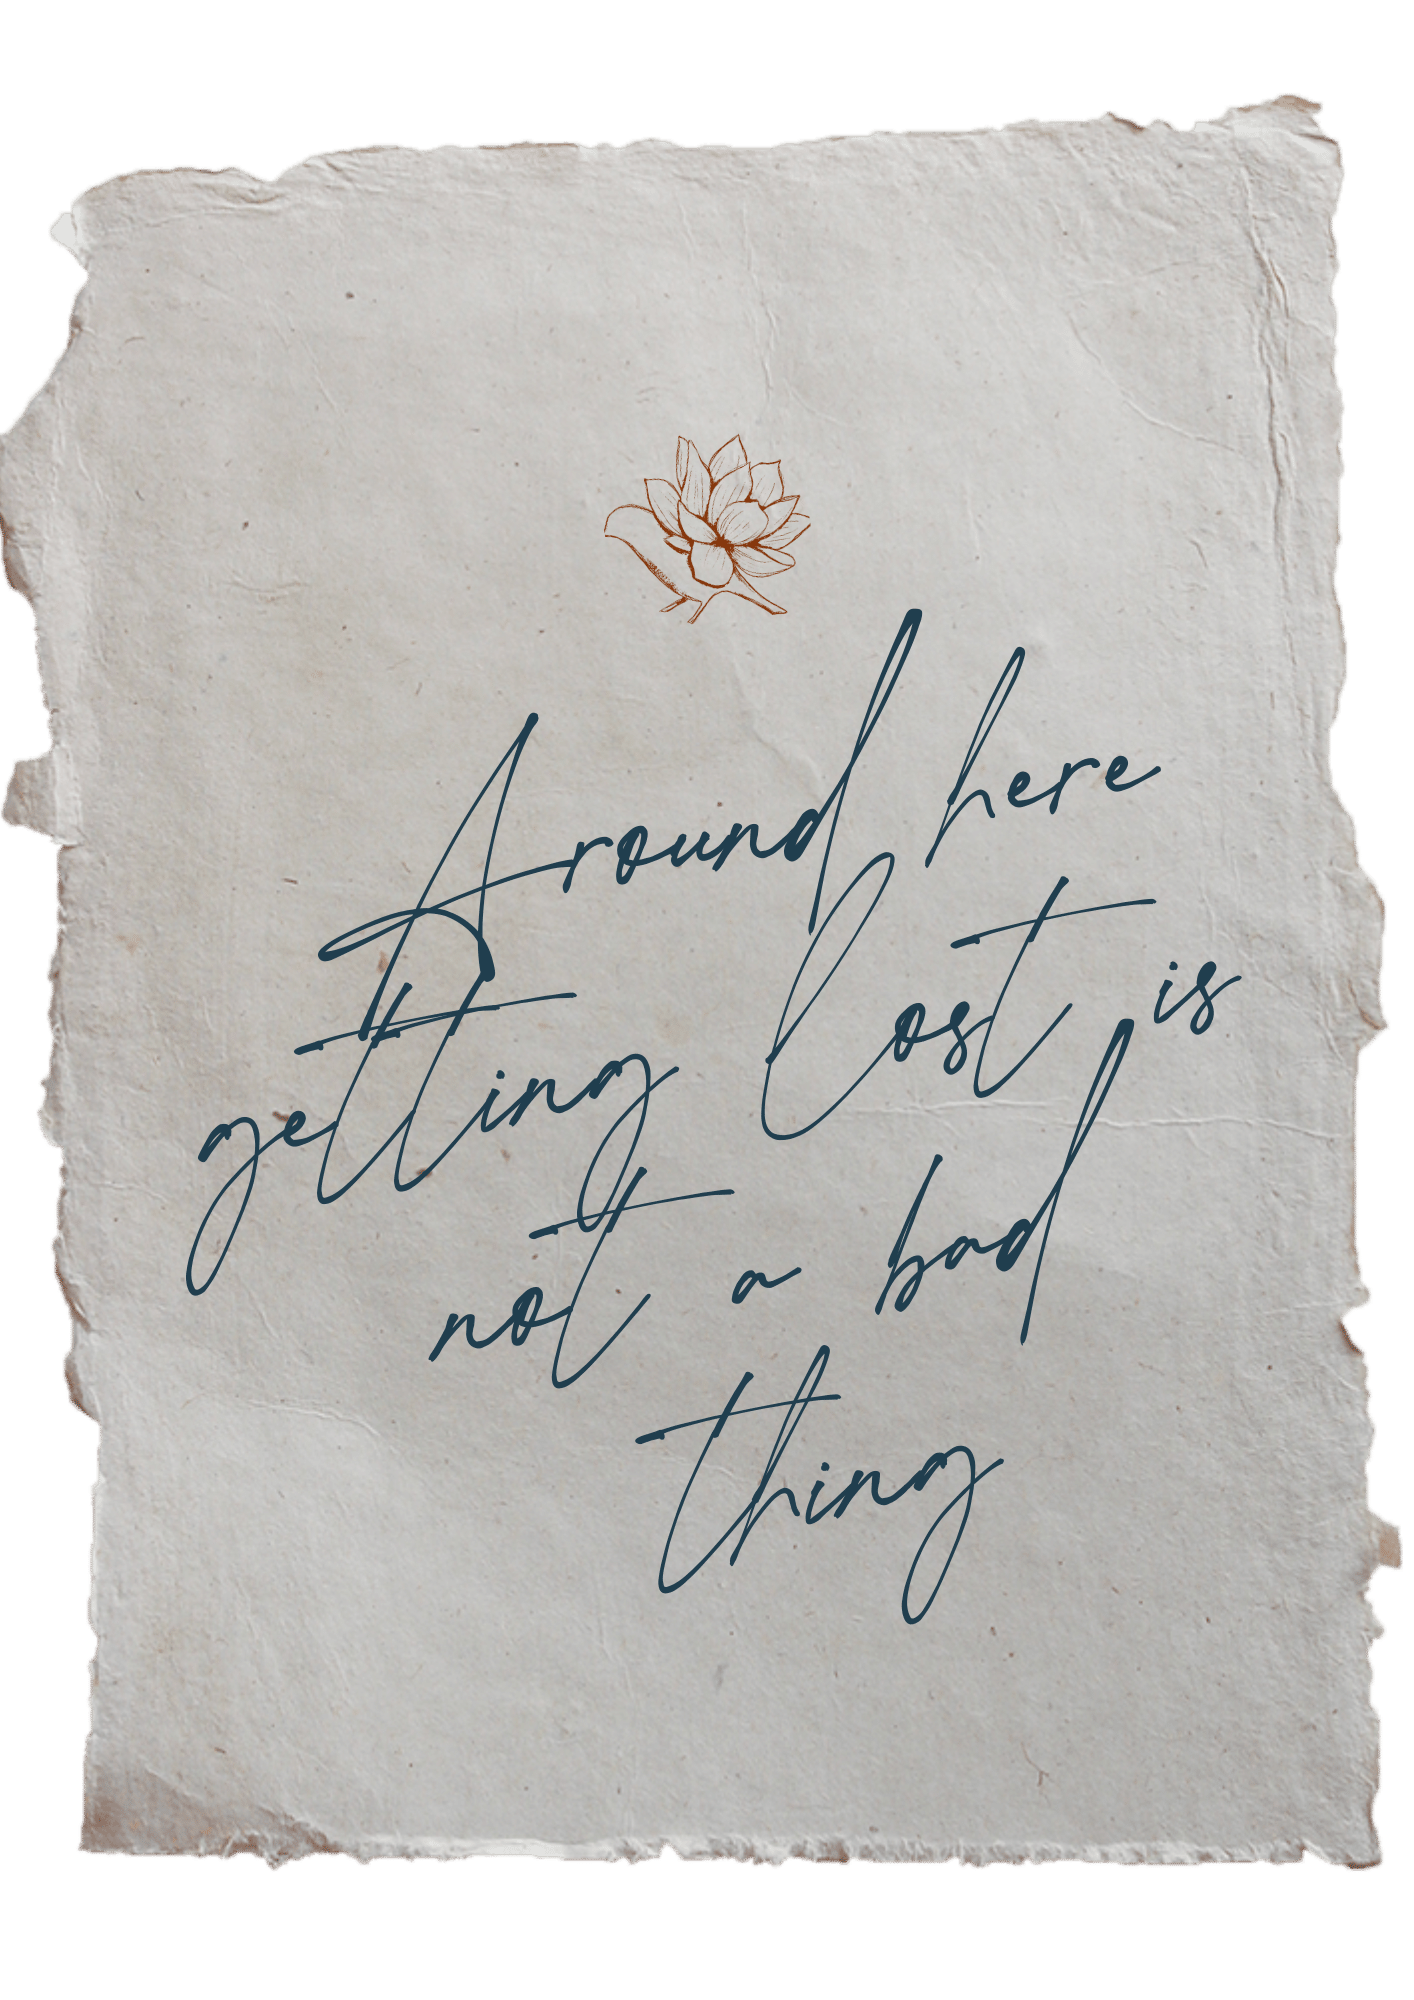 Around here
getting lost is
not a bad
thing